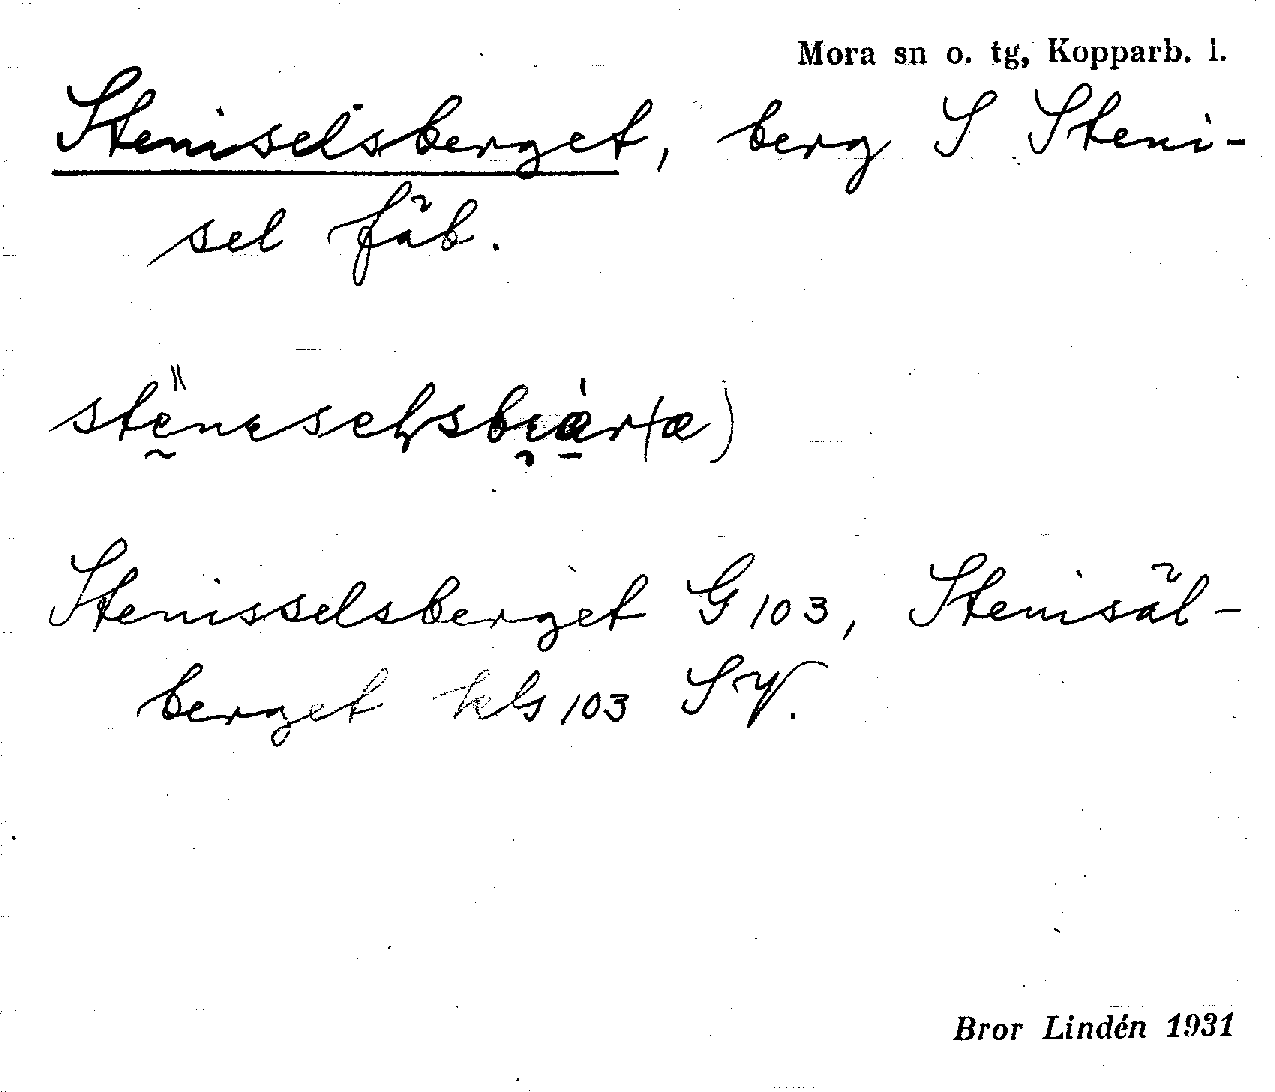 Mora sn o. tg, Kopparb. l.
Steniselsberget, berg S Steni-
sel fäb.
Stenisselsberget G 103, Stenisäl-
berget kls 103 SV.
Bror Lindén 1931